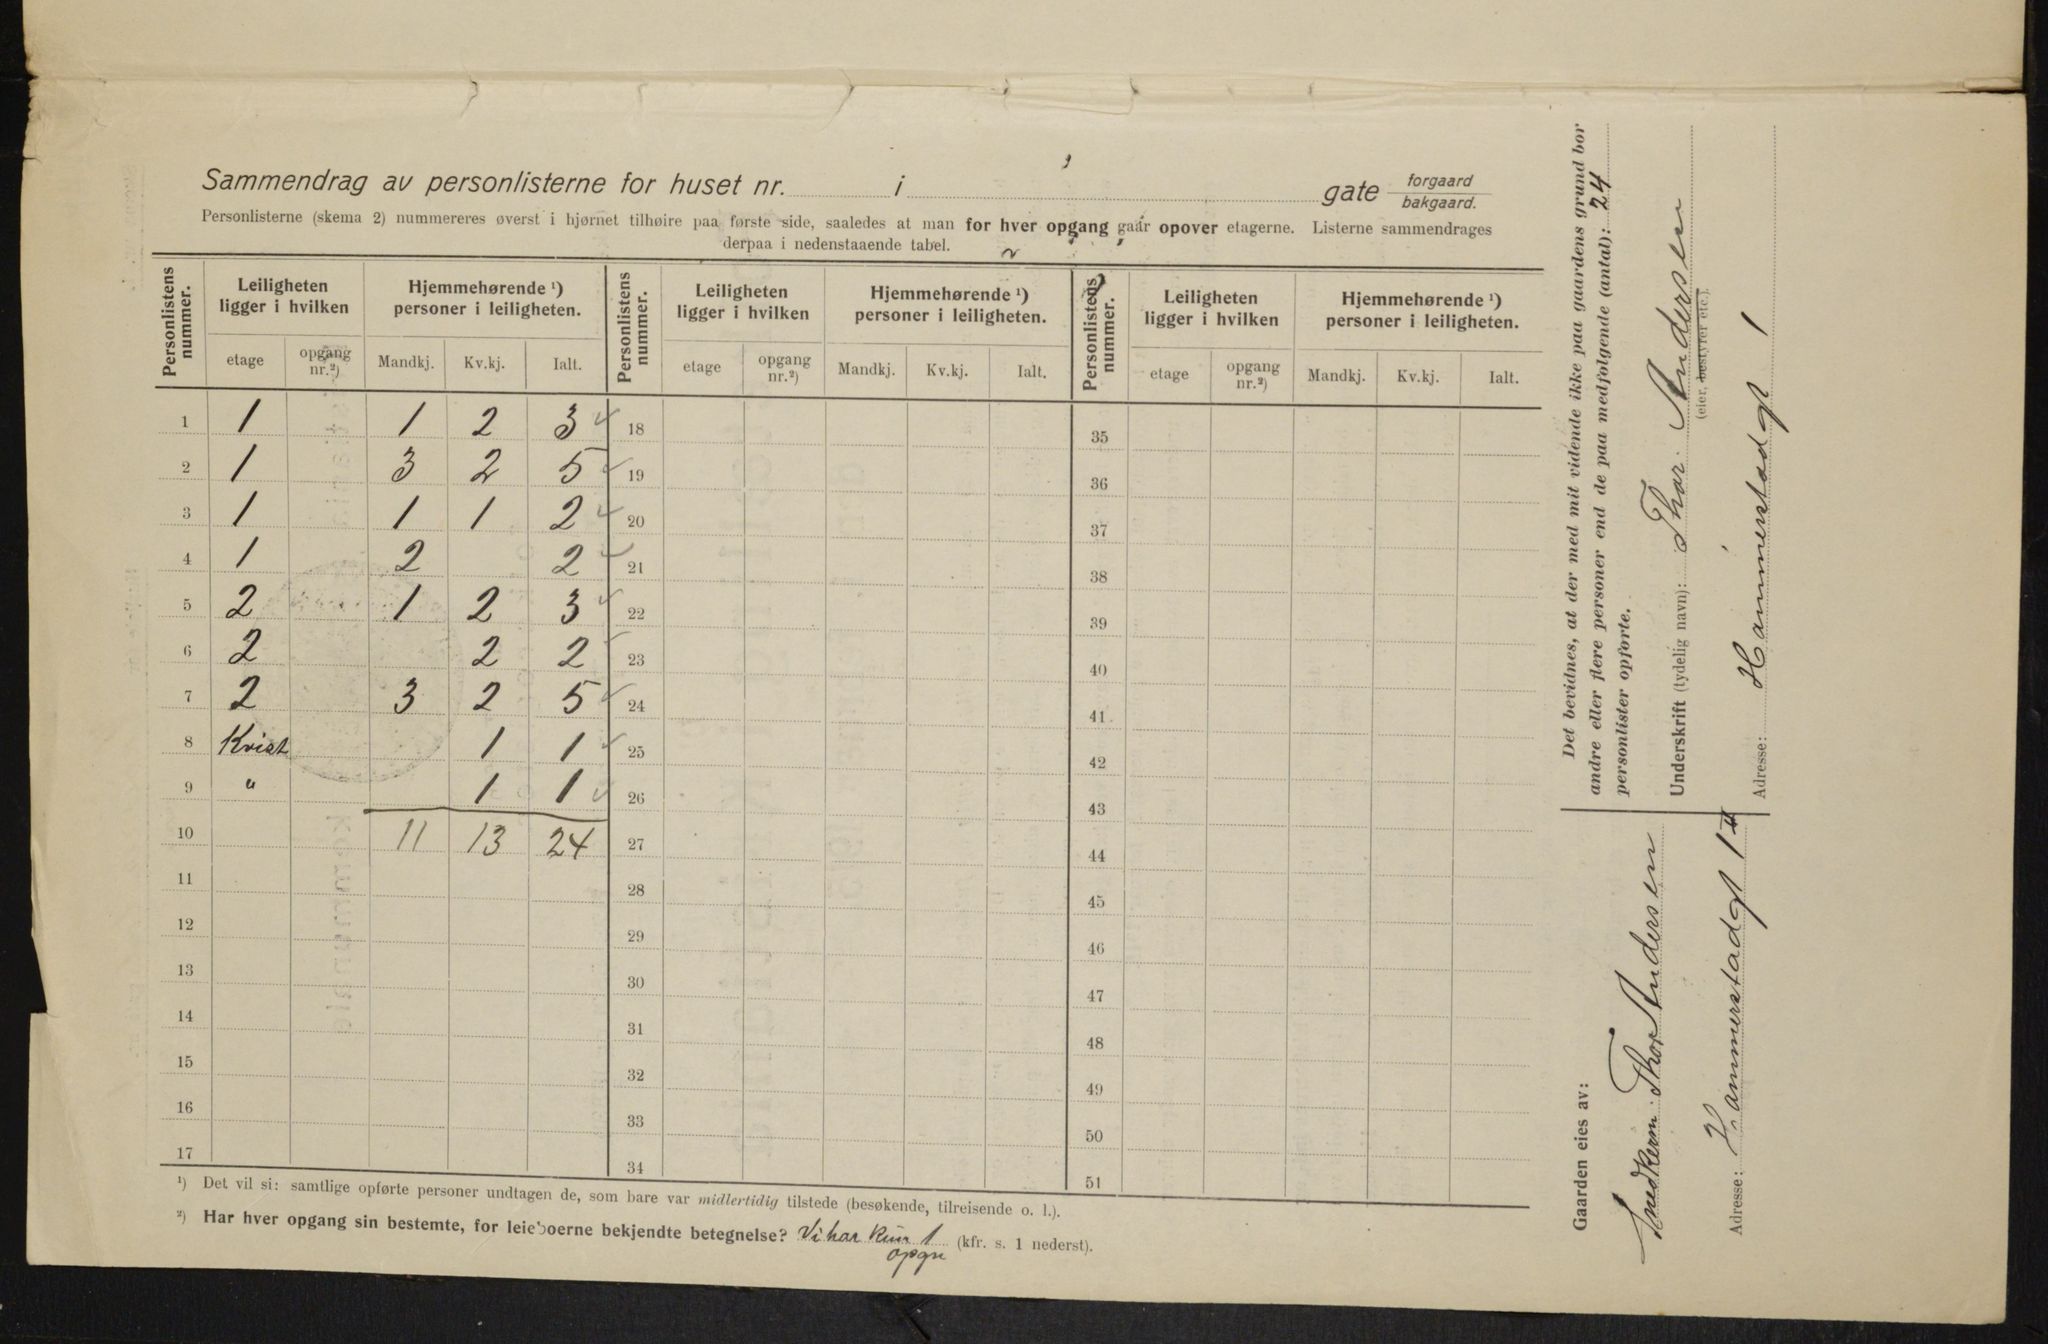 Sammendrag av personlisterne for huset nr. i gate forgaard
bakgaard.
Personlisterne (skema 2) nummereres øverst i hjørnet tilhøire paa første side, saaledes at man for hver opgang gaar opover etagerne. Listerne sammendrages
derpaa i nedenstaaende tabel.
Personlistens nummer. Leiligheten ligger i hvilken Hjemmehørende ¹) personer i leiligheten. Personlistens nummer. Leiligheten ligger i hvilken Hjemmehørende ¹) personer i leiligheten. Personlistens nummer. Leiligheten ligger i hvilken Hjemmehørende ¹) personer i leiligheten.
etage opgang nr.²) Mandkj. Kv.kj. Ialt. etage opgang nr.²) Mandkj. Kv.kj. Ialt. etage opgang nr.²) Mandkj. Kv.kj. Ialt.
1 1 1 2 3 18 35
2 1 3 2 5 19 36
3 1 1 1 2 20 37
4 1 2 2 21 38
5 2 1 2 3 22 39
6 2 2 2 23 40
7 2 3 2 5 24 41
8 Kvist 1 1 25 42
9 " 1 1 26 43
10 11 13 24 27 44
11 28 45
12 29 46
13 30 47
14 31 48
15 32 49
16 33 50
17 34 51
¹) Det vil si: samtlige opførte personer undtagen de, som bare var midlertidig tilstede (besøkende, tilreisende o. l.).
²) Har hver opgang sin bestemte, for leieboerne bekjendte betegnelse? Vi har kun 1 (kfr. s. 1 nederst).
opgn
Det bevidnes, at der med mit vidende ikke paa gaardens grund bor
andre eller flere personer end de paa medfølgende (antal): 24
personlister opførte.
Underskrift (tydelig navn): Thor. Andersen
(eier, bestyrer etc.).
Adresse: Hammerstadgt 1
Gaarden eies av:
Snedkerm. Thor Andersen
Adresse: Hammerstadgt 1 II